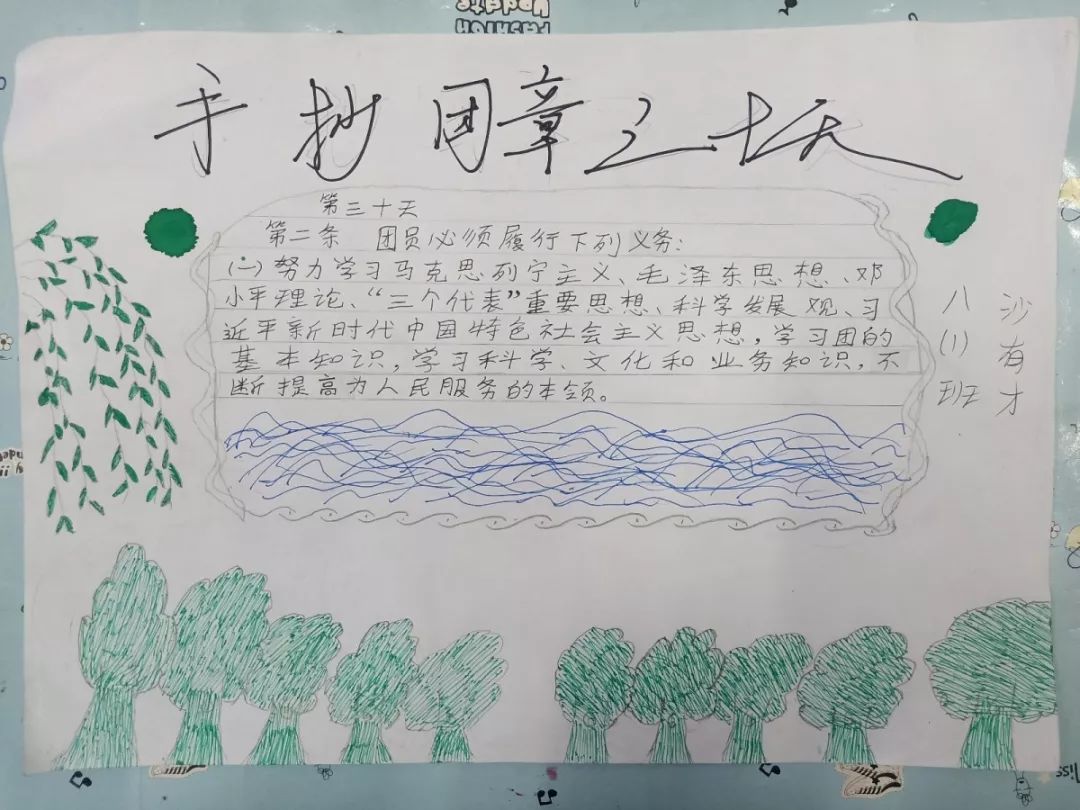 Update
Fashion
手抄团章三十天
第三十天
第二条 团员必须履行下列义务:
(一)努力学习马克思列宁主义、毛泽东思想、邓
小平理论、“三个代表”重要思想、科学发展观、习
近平新时代中国特色社会主义思想,学习团的
基本知识,学习科学、文化和业务知识,不
断提高为人民服务的本领。
八(1)班
沙有才